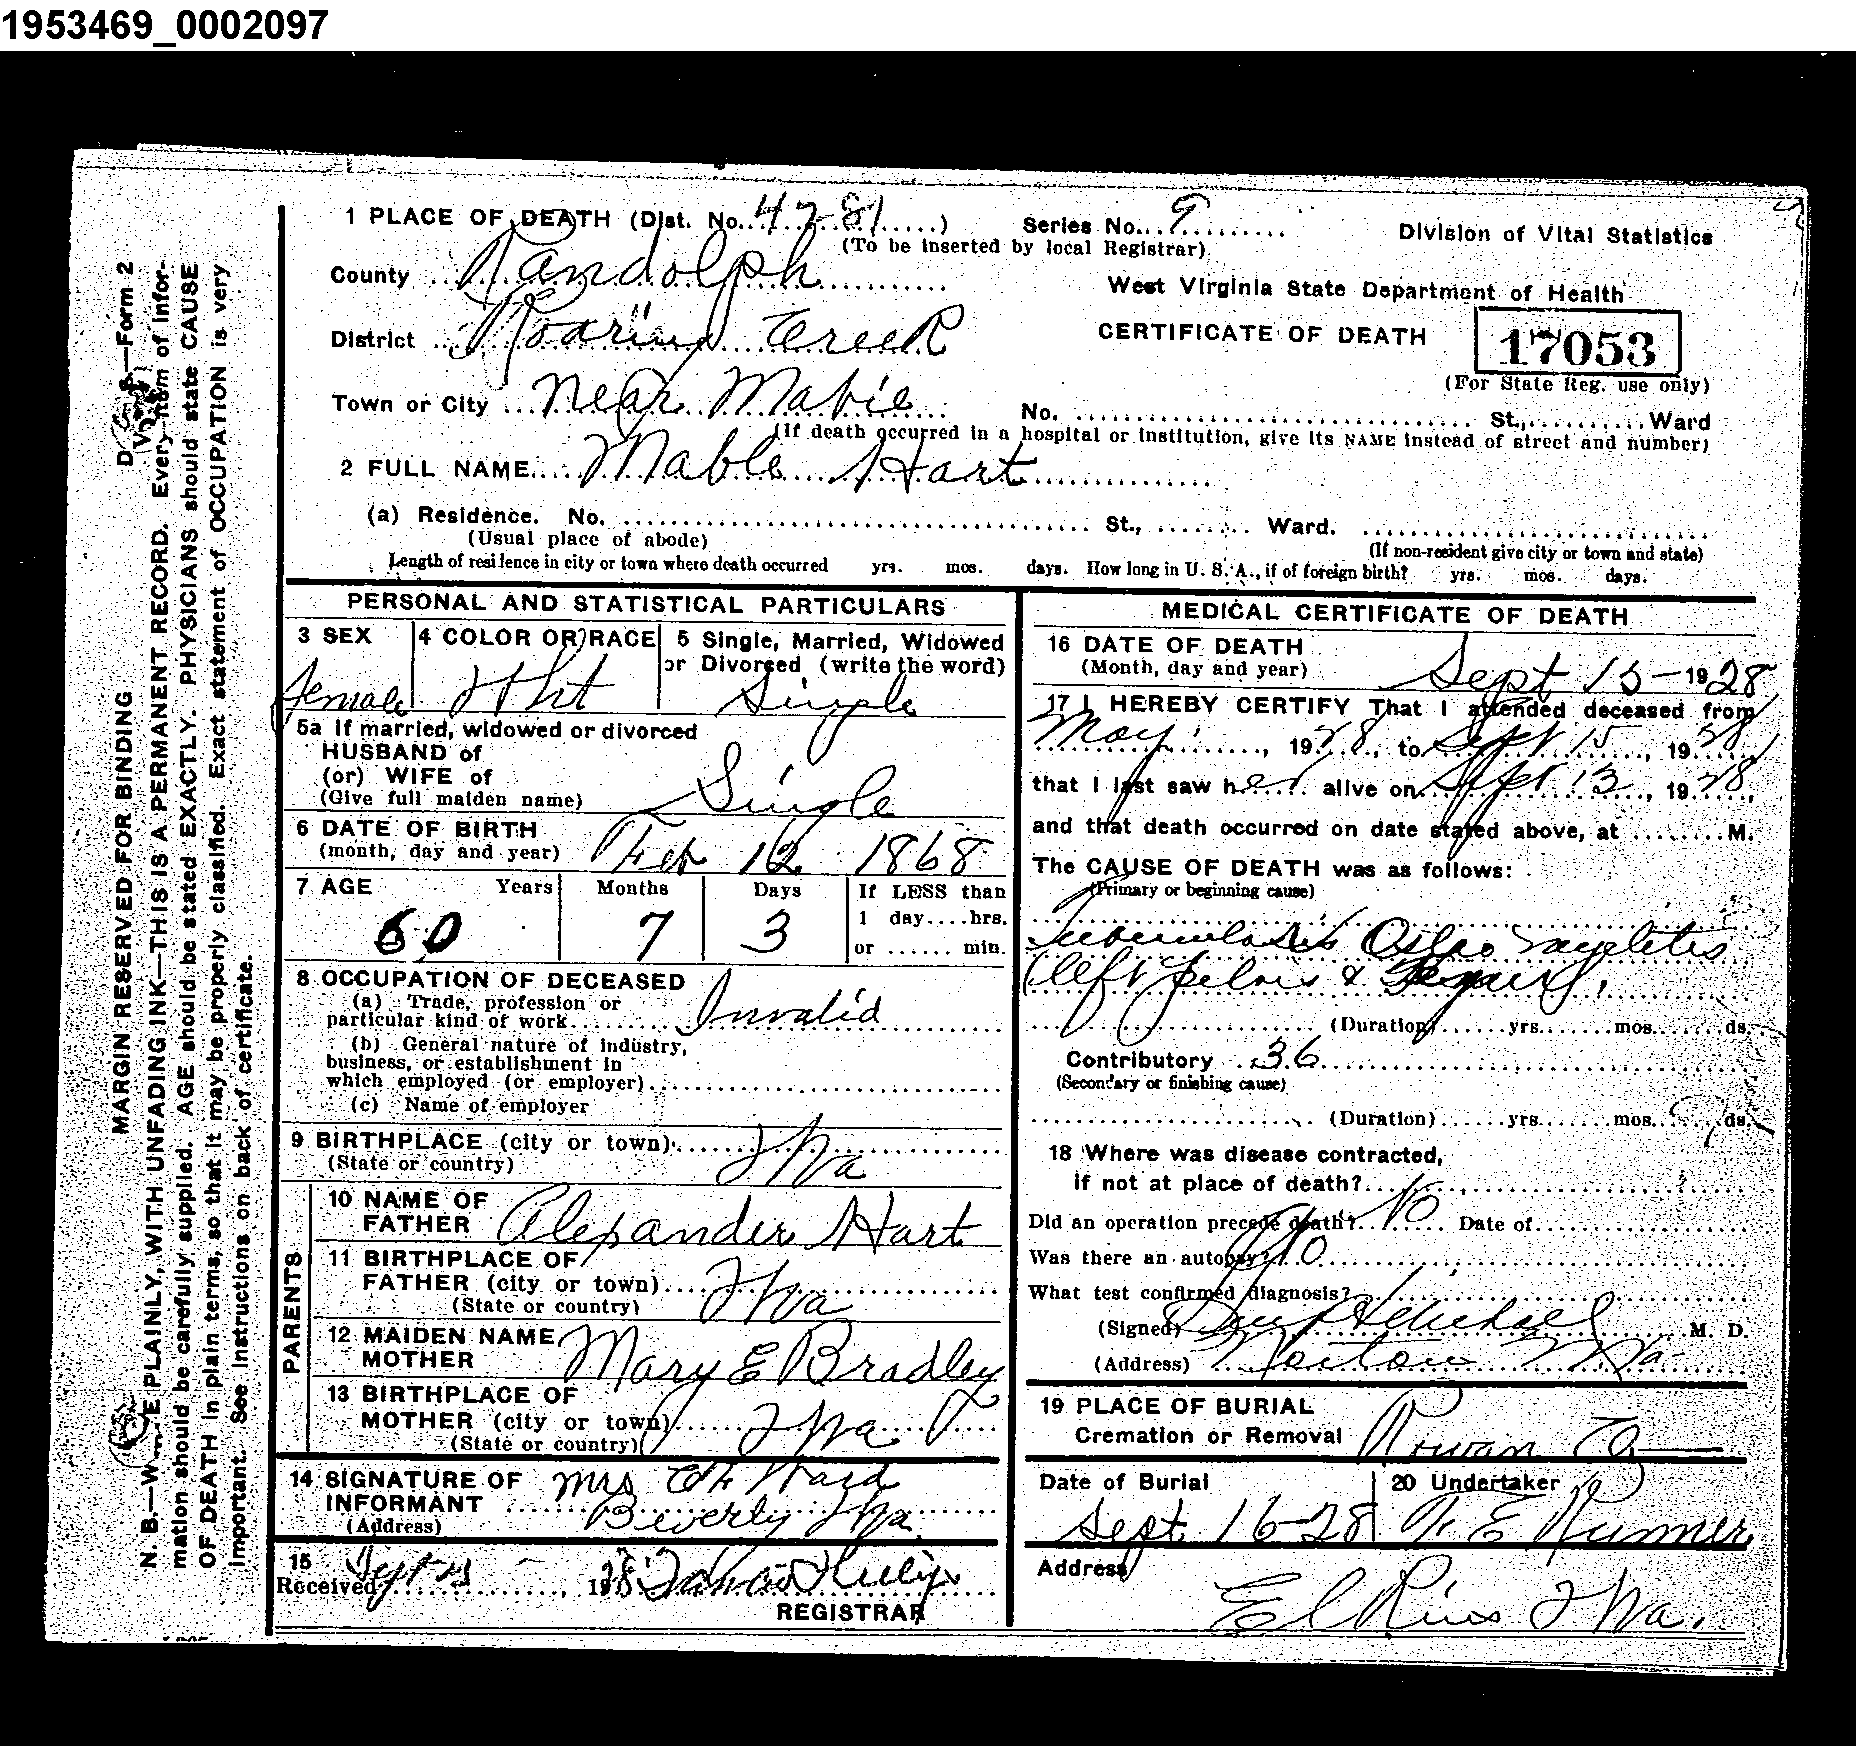 1953469_0002097
1 PLACE OF DEATH (Dist. No. 4281 ) Series No. 9
(To be inserted by local Registrar)
Division of Vital Statistics
County Randolph
West Virginia State Department of Health
District Roaring Creek
CERTIFICATE OF DEATH 17053
(For State Reg. use only)
Town or City Near Mabie No. St., Ward
(If death occurred in a hospital or institution, give its NAME instead of street and number)
2 FULL NAME Mable Hart
(a) Residence. No. St., Ward.
(Usual place of abode) (If non-resident give city or town and state)
Length of residence in city or town where death occurred yrs. mos. days. How long in U. S. A., if of foreign birth? yrs. mos. days.
PERSONAL AND STATISTICAL PARTICULARS
3 SEX
Female
4 COLOR OR RACE
Wht
5 Single, Married, Widowed
or Divorced (write the word)
Single
5a If married, widowed or divorced
HUSBAND of
(or) WIFE of
(Give full maiden name) Single
6 DATE OF BIRTH
(month, day and year) Feb 12 1868
7 AGE Years Months Days If LESS than
1 day....hrs.
60 7 3 or ...... min.
8 OCCUPATION OF DECEASED
(a) Trade, profession or
particular kind of work Invalid
(b) General nature of industry,
business, or establishment in
which employed (or employer)
(c) Name of employer
9 BIRTHPLACE (city or town)
(State or country) W Va
PARENTS
10 NAME OF
FATHER Alexander Hart
11 BIRTHPLACE OF
FATHER (city or town)
(State or country) W Va
12 MAIDEN NAME
MOTHER Mary E Bradley
13 BIRTHPLACE OF
MOTHER (city or town)
(State or country) W Va
14 SIGNATURE OF
INFORMANT Mrs Ward
(Address) Beverly W Va
15
Received Sept 1928
REGISTRAR
MEDICAL CERTIFICATE OF DEATH
16 DATE OF DEATH
(Month, day and year) Sept 15 - 1928
17 I HEREBY CERTIFY That I attended deceased from
May, 1928, to Sept 15, 1928
that I last saw her alive on Sept 13, 1928,
and that death occurred on date stated above, at ........M.
The CAUSE OF DEATH was as follows:
(Primary or beginning cause)
Tuberculosis Osteo Myelitis
left pelvis &
(Duration) yrs. mos. ds.
Contributory 36
(Secondary or finishing cause)
(Duration) yrs. mos. ds.
18 Where was disease contracted,
if not at place of death?
Did an operation precede death? No Date of
Was there an autopsy? No
What test confirmed diagnosis?
(Signed) M. D.
(Address) Norton W Va
19 PLACE OF BURIAL
Cremation or Removal Rowan
Date of Burial
Sept 16-28
20 Undertaker
E Runner
Address
Elkins W Va.
MARGIN RESERVED FOR BINDING
N. B.—WRITE PLAINLY, WITH UNFADING INK—THIS IS A PERMANENT RECORD. Every item of information should be carefully supplied. AGE should be stated EXACTLY. PHYSICIANS should state CAUSE OF DEATH in plain terms, so that it may be properly classified. Exact statement of OCCUPATION is very important. See instructions on back of certificate.
—Form 2